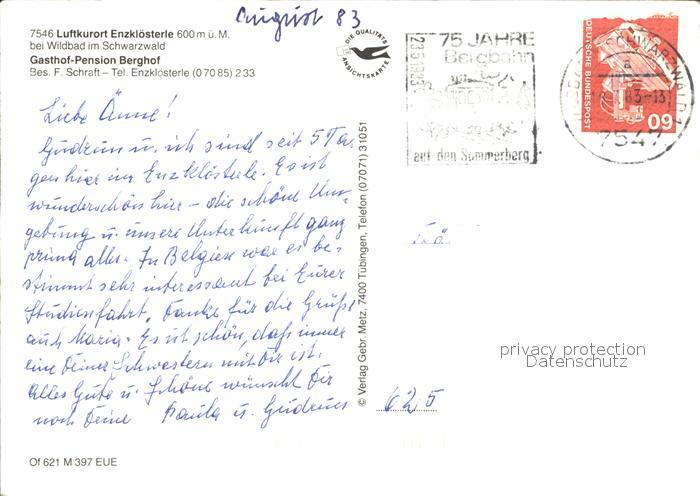 August 83
7546 Luftkurort Enzklösterle 600 m ü. M.
bei Wildbad im Schwarzwald
Gasthof-Pension Berghof
Bes. F. Schraft – Tel. Enzklösterle (0 70 85) 2 33
DIE QUALITÄTS ANSICHTSKARTE
75 JAHRE
Bergbahn
auf den Sommerberg
DEUTSCHE BUNDESPOST
60
SCHWARZWALD 1
a
83-13
7547
Liebe Änne!
Gudrun u. ich sind seit 5 Ta-
gen hier in Enzklösterle. Es ist
wunderschön hier – die schöne Um-
gebung u. unsere Unterkunft ganz
prima alles. In Belgien war es be-
stimmt sehr interessant bei Eurer
Studienfahrt. Danke für die Grüße
auch Maria. Es ist schön, daß immer
eine Deiner Schwestern mit Dir ist.
Alles Gute u. Schöne wünscht Dir
noch Deine Paula u. Gudrun
© Verlag Gebr. Metz, 7400 Tübingen, Telefon (07071) 31051
625
privacy protection
Datenschutz
Of 621 M 397 EUE